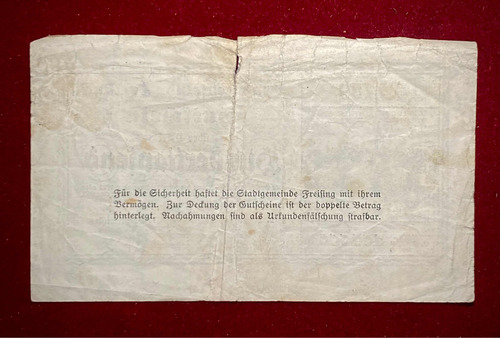 Für die Sicherheit haftet die Stadtgemeinde Freising mit ihrem
Vermögen. Zur Deckung der Gutscheine ist der doppelte Betrag
hinterlegt. Nachahmungen sind als Urkundenfälschung strafbar.